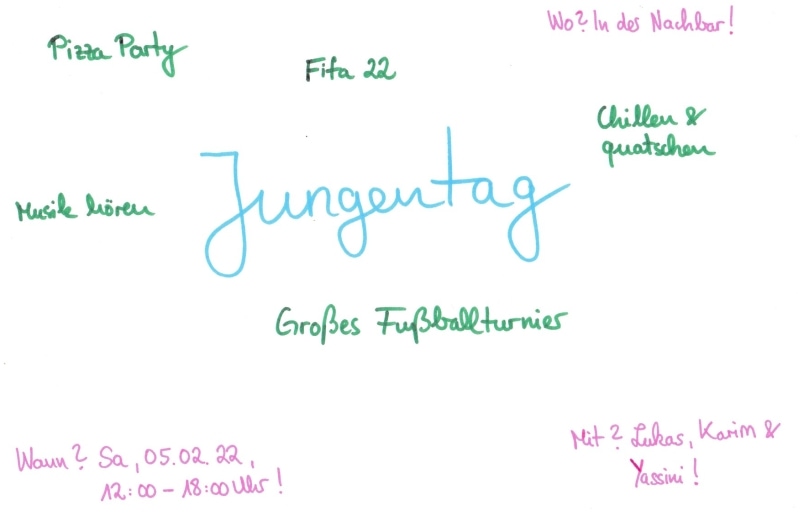 Wo? In der Nachbar!
Pizza Party
Fifa 22
Chillen &
quatschen
Jungentag
Musik hören
Großes Fußballturnier
Wann? Sa, 05.02.22,
12:00 - 18:00 Uhr!
Mit? Lukas, Karim &
Yassini!